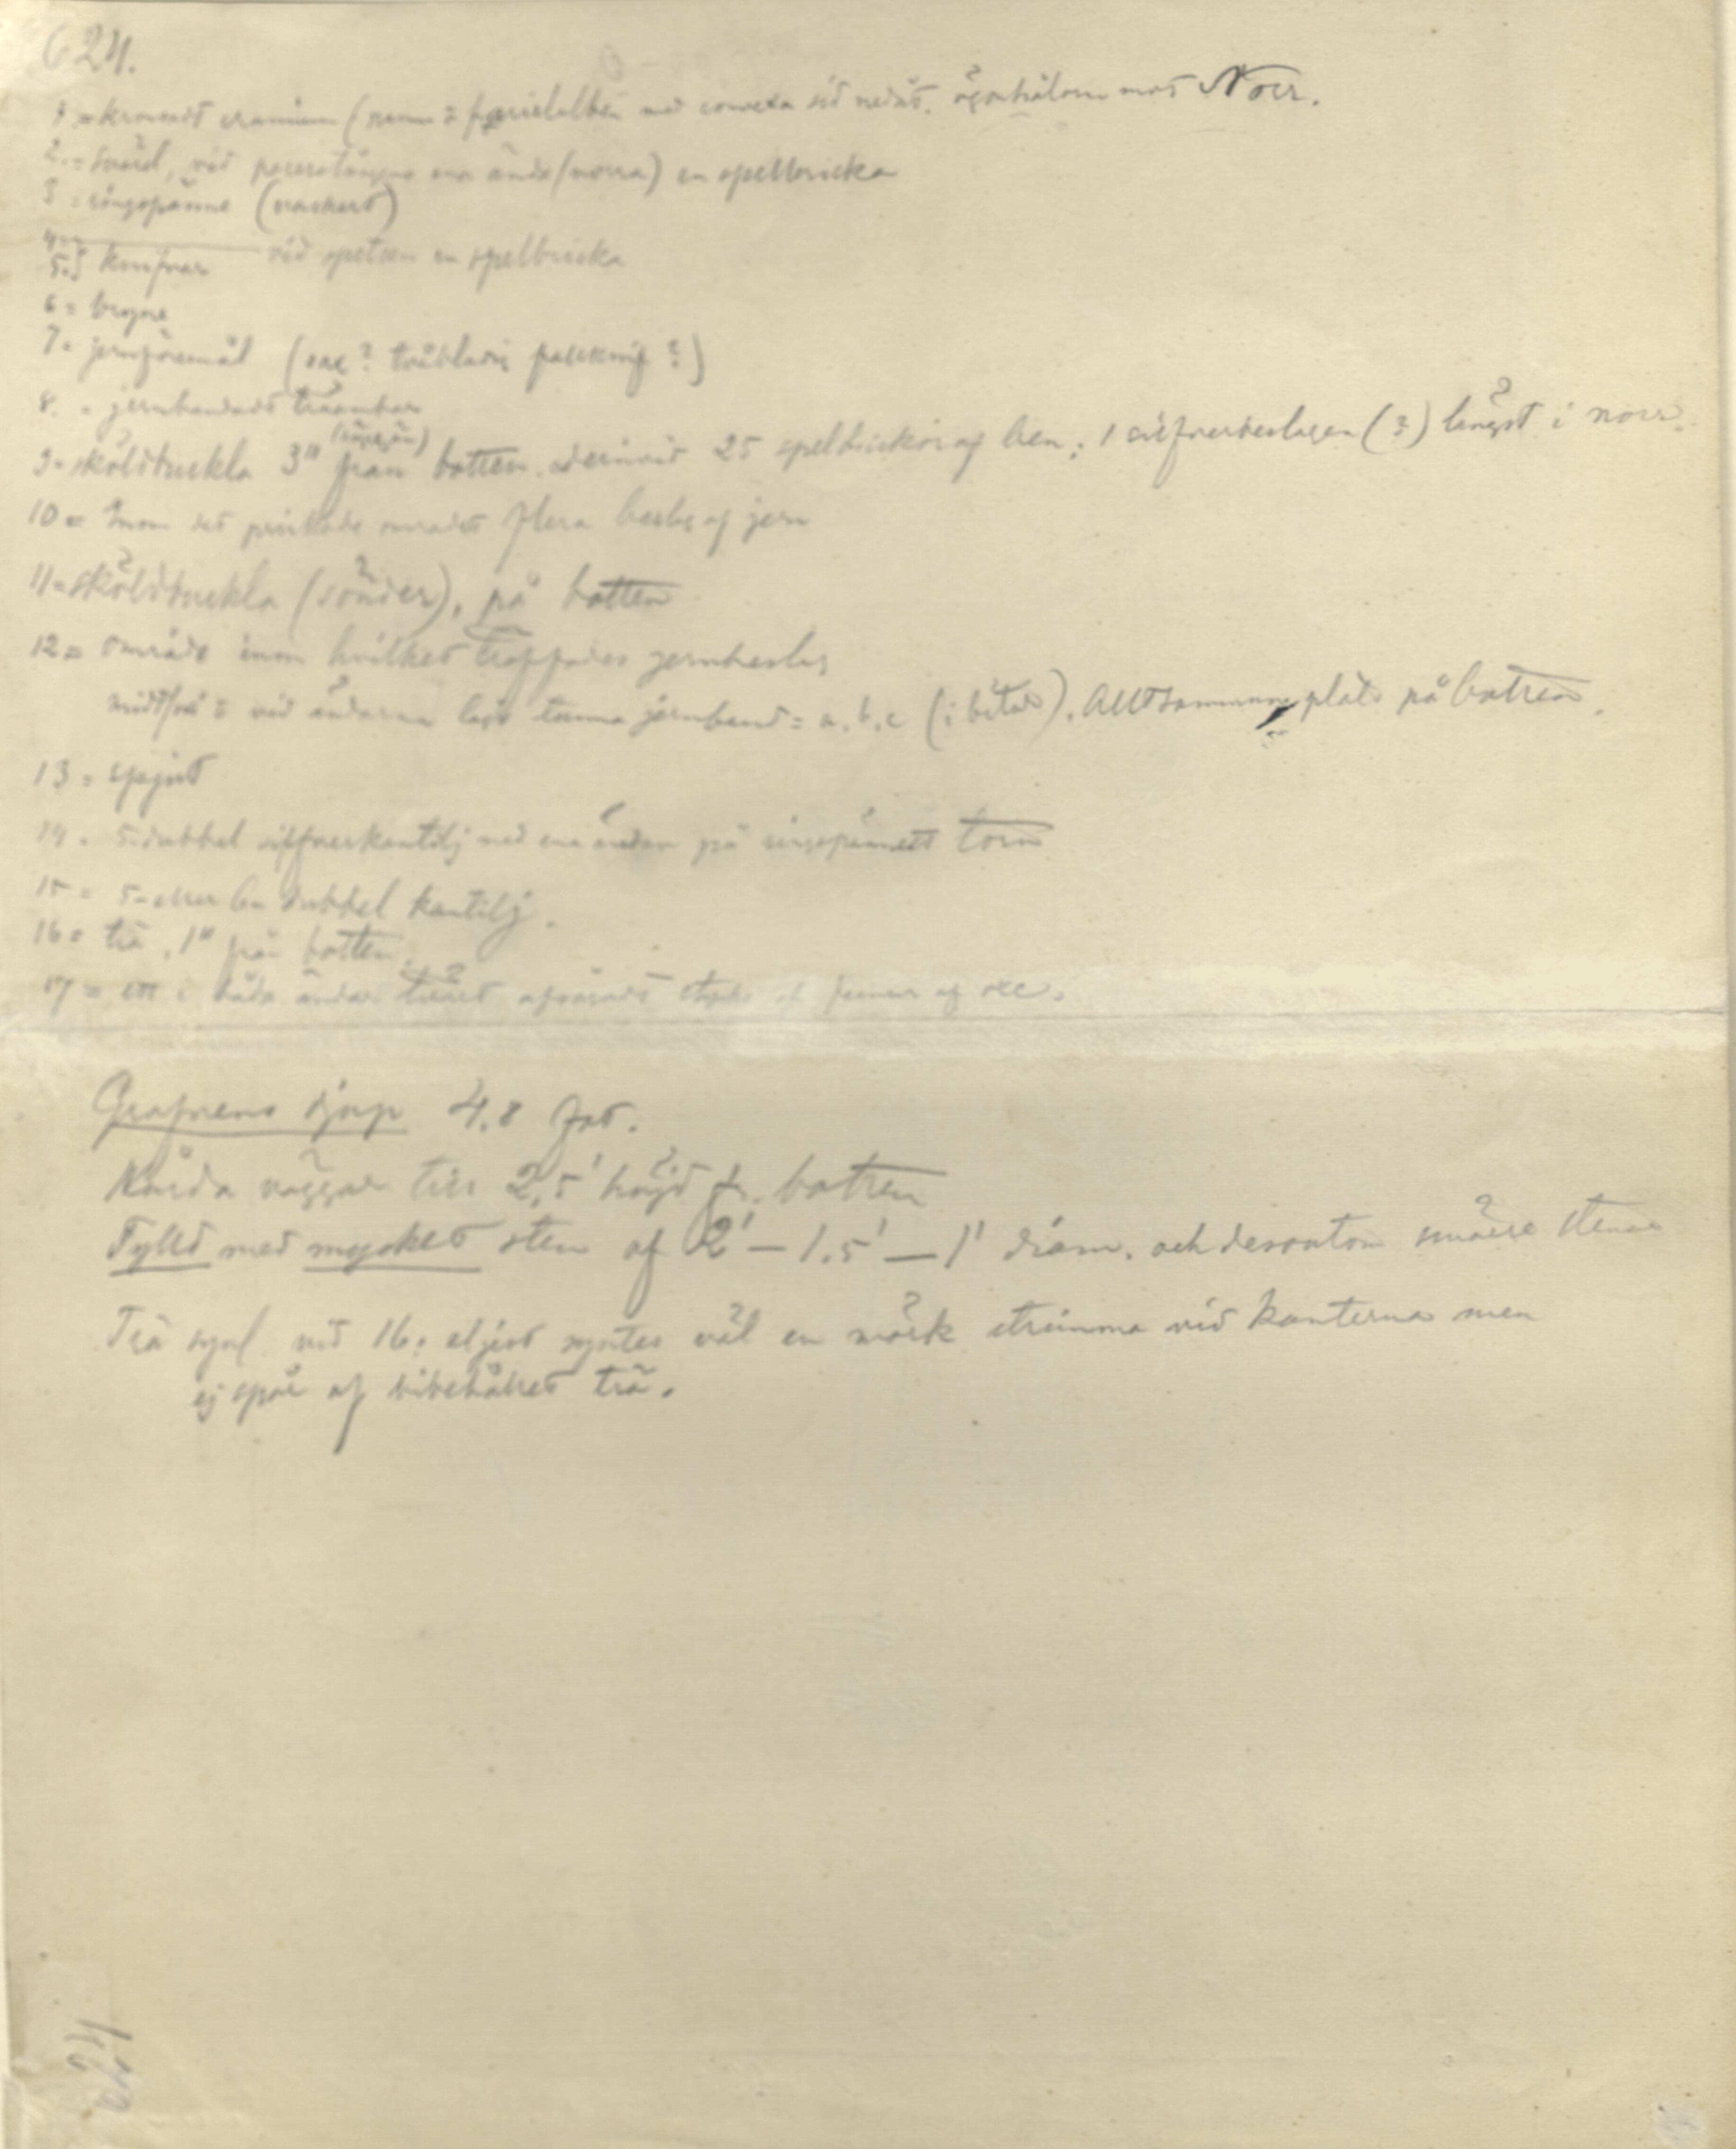 624.
1.= krossadt cranium (panna o parietalben med convexa sid nedåt. ögonhålorna mot Norr.
2.= Svärd, vid parerstångens ena ände (norra) en spelbricka
3 = ringspänne (vackert)
4.=} vid spetsen en spelbricka
5.} knifvar
6 = bryne
7 = jernföremål (sax? tvåbladig fällknif?)
8. = jernbandadt träämbar
9 = sköldbuckla 3" från botten. derinvid 25 spelbrickor af ben; 1 silfverbeslagen (?) längst i norr.
10 = Inom det prickade området flera beslag af jern
11 = sköldbuckla (sönder), på botten
12 = område inom hvilket träffades jernbeslag
midtpå o vid ändarna lågo tunna jernband = a, b, c (i bitar). Alltsammans platt på botten.
13 = spjut
14. 5.dubbel silfverkantilj med ena ändan på ringspännets torn
15 = 5- eller 6- dubbel kantilj.
16 = trä, 1" från botten.
17 = ett i båda ändar tvärt afsågadt stycke af femur af oxe.
Grafvens djup 4,8 fot.
Hårda väggar till 2,5' höjd fr. botten
Fylld med mycket sten af 2' — 1.5' — 1' diam. och dessutom smärre stenar
Trä synl. vid 16; eljest syntes väl en mörk strimma vid kanterna men
ej spår af bibehållet trä.